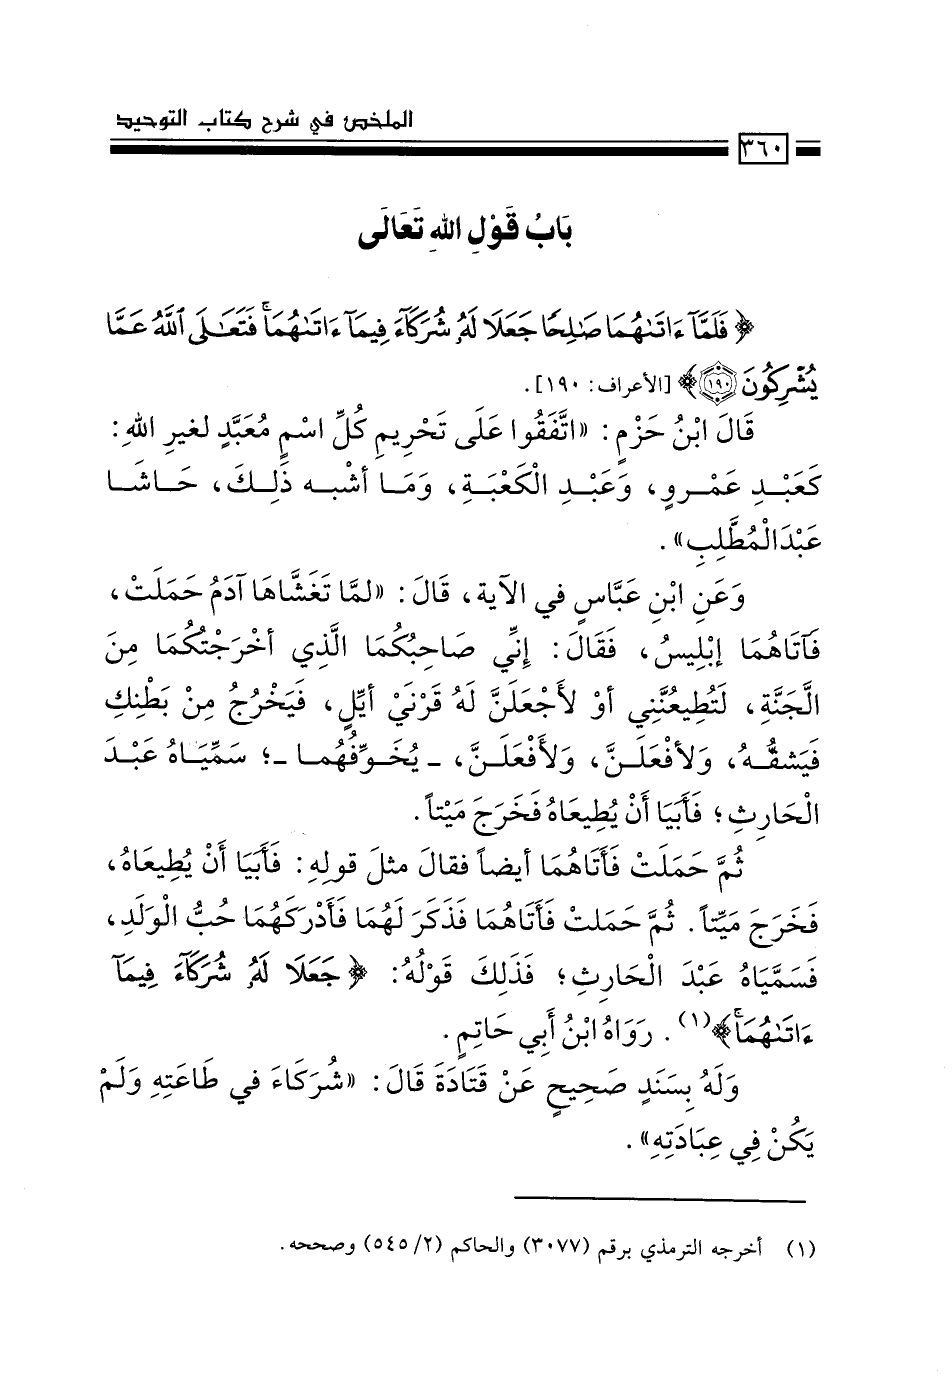 الملخص في شرح كتاب التوحيد
٣٦٠
بَابُ قَوْلِ اللهِ تَعَالَى
﴿ فَلَمَّآ ءَاتَىٰهُمَا صَٰلِحًا جَعَلَا لَهُۥ شُرَكَآءَ فِيمَآ ءَاتَىٰهُمَاۚ فَتَعَٰلَى ٱللَّهُ عَمَّا
يُشْرِكُونَ ١٩٠﴾ [الأعراف: ١٩٠].
قَالَ ابْنُ حَزْمٍ: «اتَّفَقُوا عَلَى تَحْرِيمِ كُلِّ اسْمٍ مُعَبَّدٍ لغيرِ اللهِ:
كَعَبْدِ عَمْرٍو، وَعَبْدِ الْكَعْبَةِ، وَمَا أشْبه ذَلِكَ، حَاشَا
عَبْدَالْمُطَّلِبِ».
وَعَنِ ابْنِ عَبَّاسٍ في الآية، قَالَ: «لمَّا تَغَشَّاهَا آدَمُ حَمَلَتْ،
فَآتَاهُمَا إبْلِيسُ، فَقَالَ: إنِّي صَاحِبُكُمَا الَّذِي أخْرَجْتُكُمَا مِنَ
الْجَنَّةِ، لَتُطِيعُنَّنِي أوْ لأَجْعَلَنَّ لَهُ قَرْنَيْ أيِّلٍ، فَيَخْرُجُ مِنْ بَطْنِكِ
فَيَشقُّهُ، وَلأفْعَلَنَّ، وَلأَفْعَلَنَّ، ـ يُخَوِّفُهُما ـ؛ سَمِّيَاهُ عَبْدَ
الْحَارِثِ؛ فَأَبَيَا أَنْ يُطِيعَاهُ فَخَرَجَ مَيْتاً.
ثُمَّ حَمَلَتْ فَأَتَاهُمَا أيضاً فقالَ مثلَ قولِهِ: فَأَبَيَا أَنْ يُطِيعَاهُ،
فَخَرَجَ مَيِّتاً. ثُمَّ حَمَلتْ فَأَتَاهُمَا فَذَكَرَ لَهُمَا فَأَدْرَكَهُمَا حُبُّ الْوَلَدِ،
فَسَمَّيَاهُ عَبْدَ الْحَارِثِ؛ فَذَلِكَ قَوْلُهُ: ﴿ جَعَلَا لَهُۥ شُرَكَآءَ فِيمَآ
ءَاتَىٰهُمَاۚ﴾(١). رَوَاهُ ابْنُ أَبي حَاتِمٍ.
وَلَهُ بِسَنَدٍ صَحِيحٍ عَنْ قَتَادَةَ قَالَ: «شُرَكَاءَ في طَاعَتِهِ وَلَمْ
يَكُنْ فِي عِبَادَتِهِ».
(١) أخرجه الترمذي برقم (٣٠٧٧) والحاكم (٢/ ٥٤٥) وصححه.